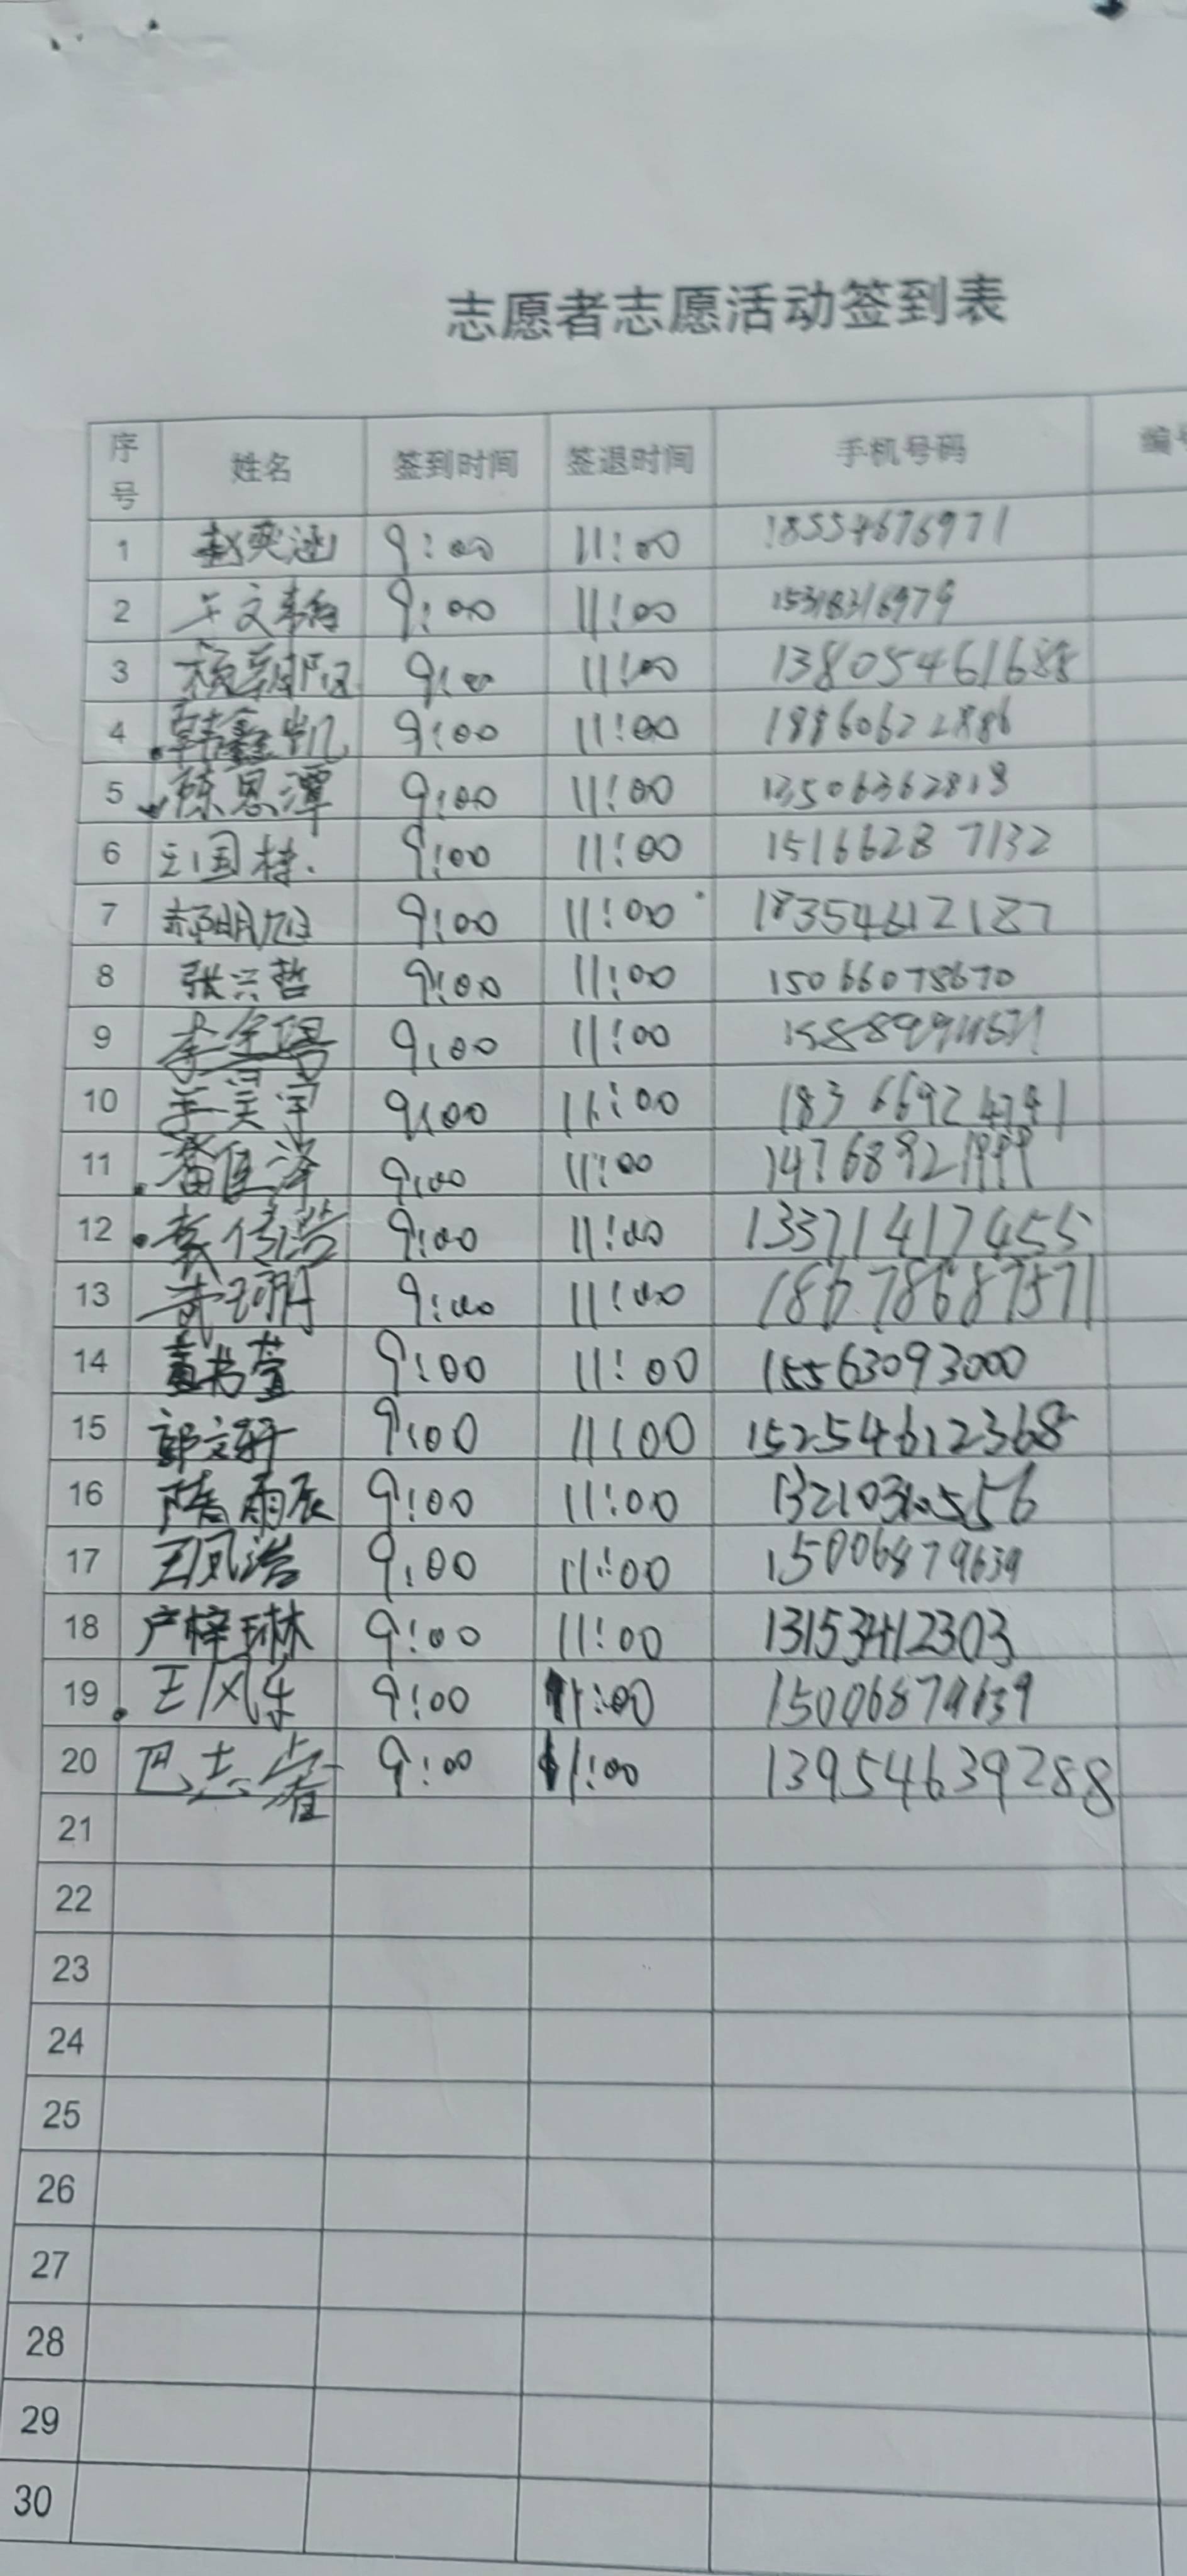 志愿者志愿活动签到表
序号 姓名 签到时间 签退时间 手机号码
1 赵奕涵 9:00 11:00 18554676971
2 9:00 11:00 15318316979
3 9:00 11:00 13805461688
4 韩鑫凯 9:00 11:00 18860622886
5 陈思潭 9:00 11:00 13506362818
6 国栋 9:00 11:00 15166287132
7 祁明旭 9:00 11:00 18354612187
8 张兴哲 9:00 11:00 15066078670
9 李 9:00 11:00
10 宇 9:00 11:00 18366924741
11 潘恒泽 9:00 11:00 14768921999
12 传浩 9:00 11:00 13371417455
13 9:00 11:00 18678687571
14 董书萱 9:00 11:00 15563093000
15 郭文轩 9:00 11:00 15254612368
16 隋雨辰 9:00 11:00
17 王风浩 9:00 11:00 15006879639
18 卢梓琳 9:00 11:00 13153412303
19 王风乐 9:00 11:00 15006879639
20 巴志睿 9:00 11:00 13954639288
21
22
23
24
25
26
27
28
29
30